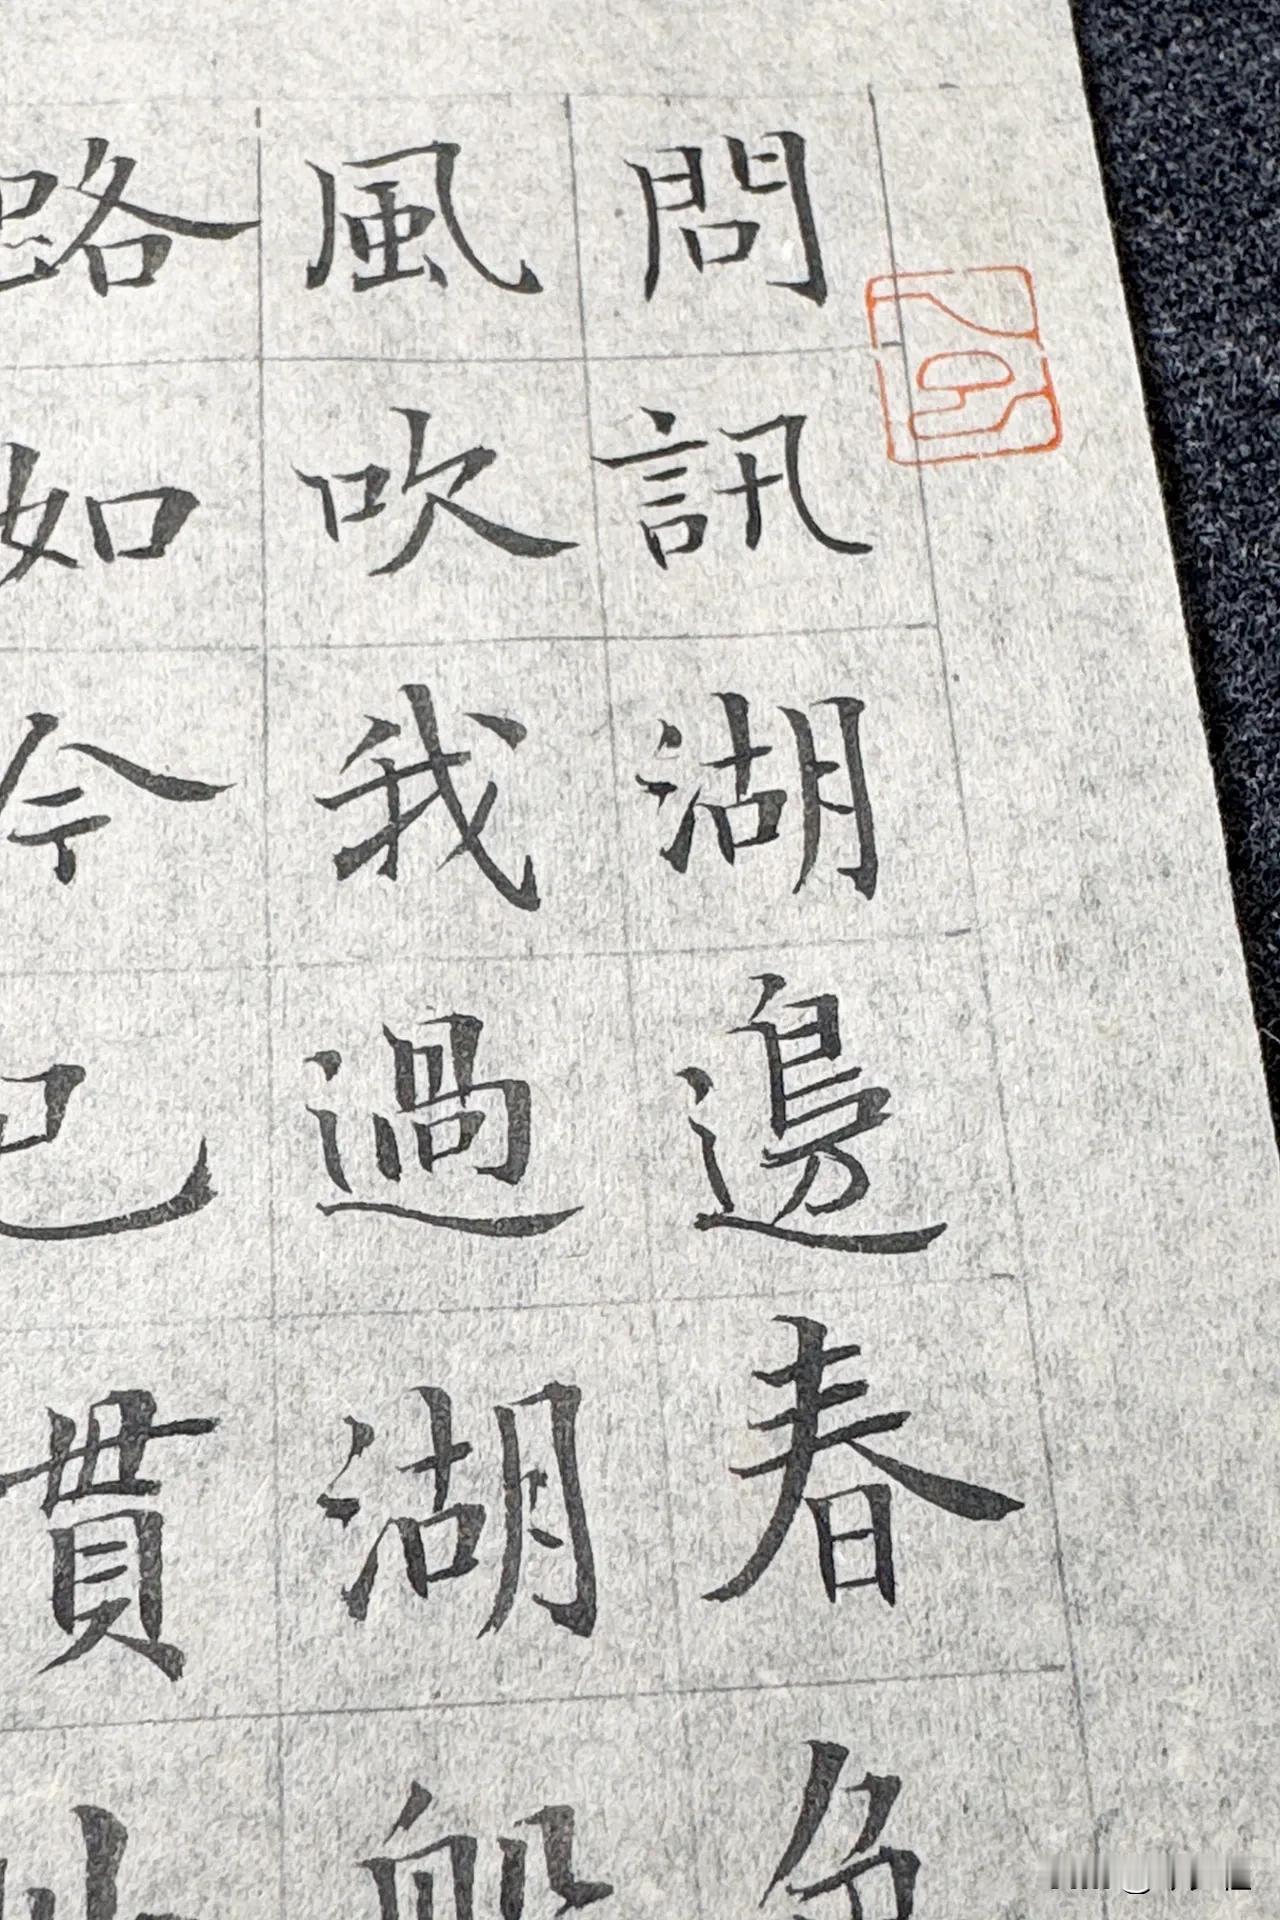 問訊湖邊春色
風吹我過湖船
路如今已貫此